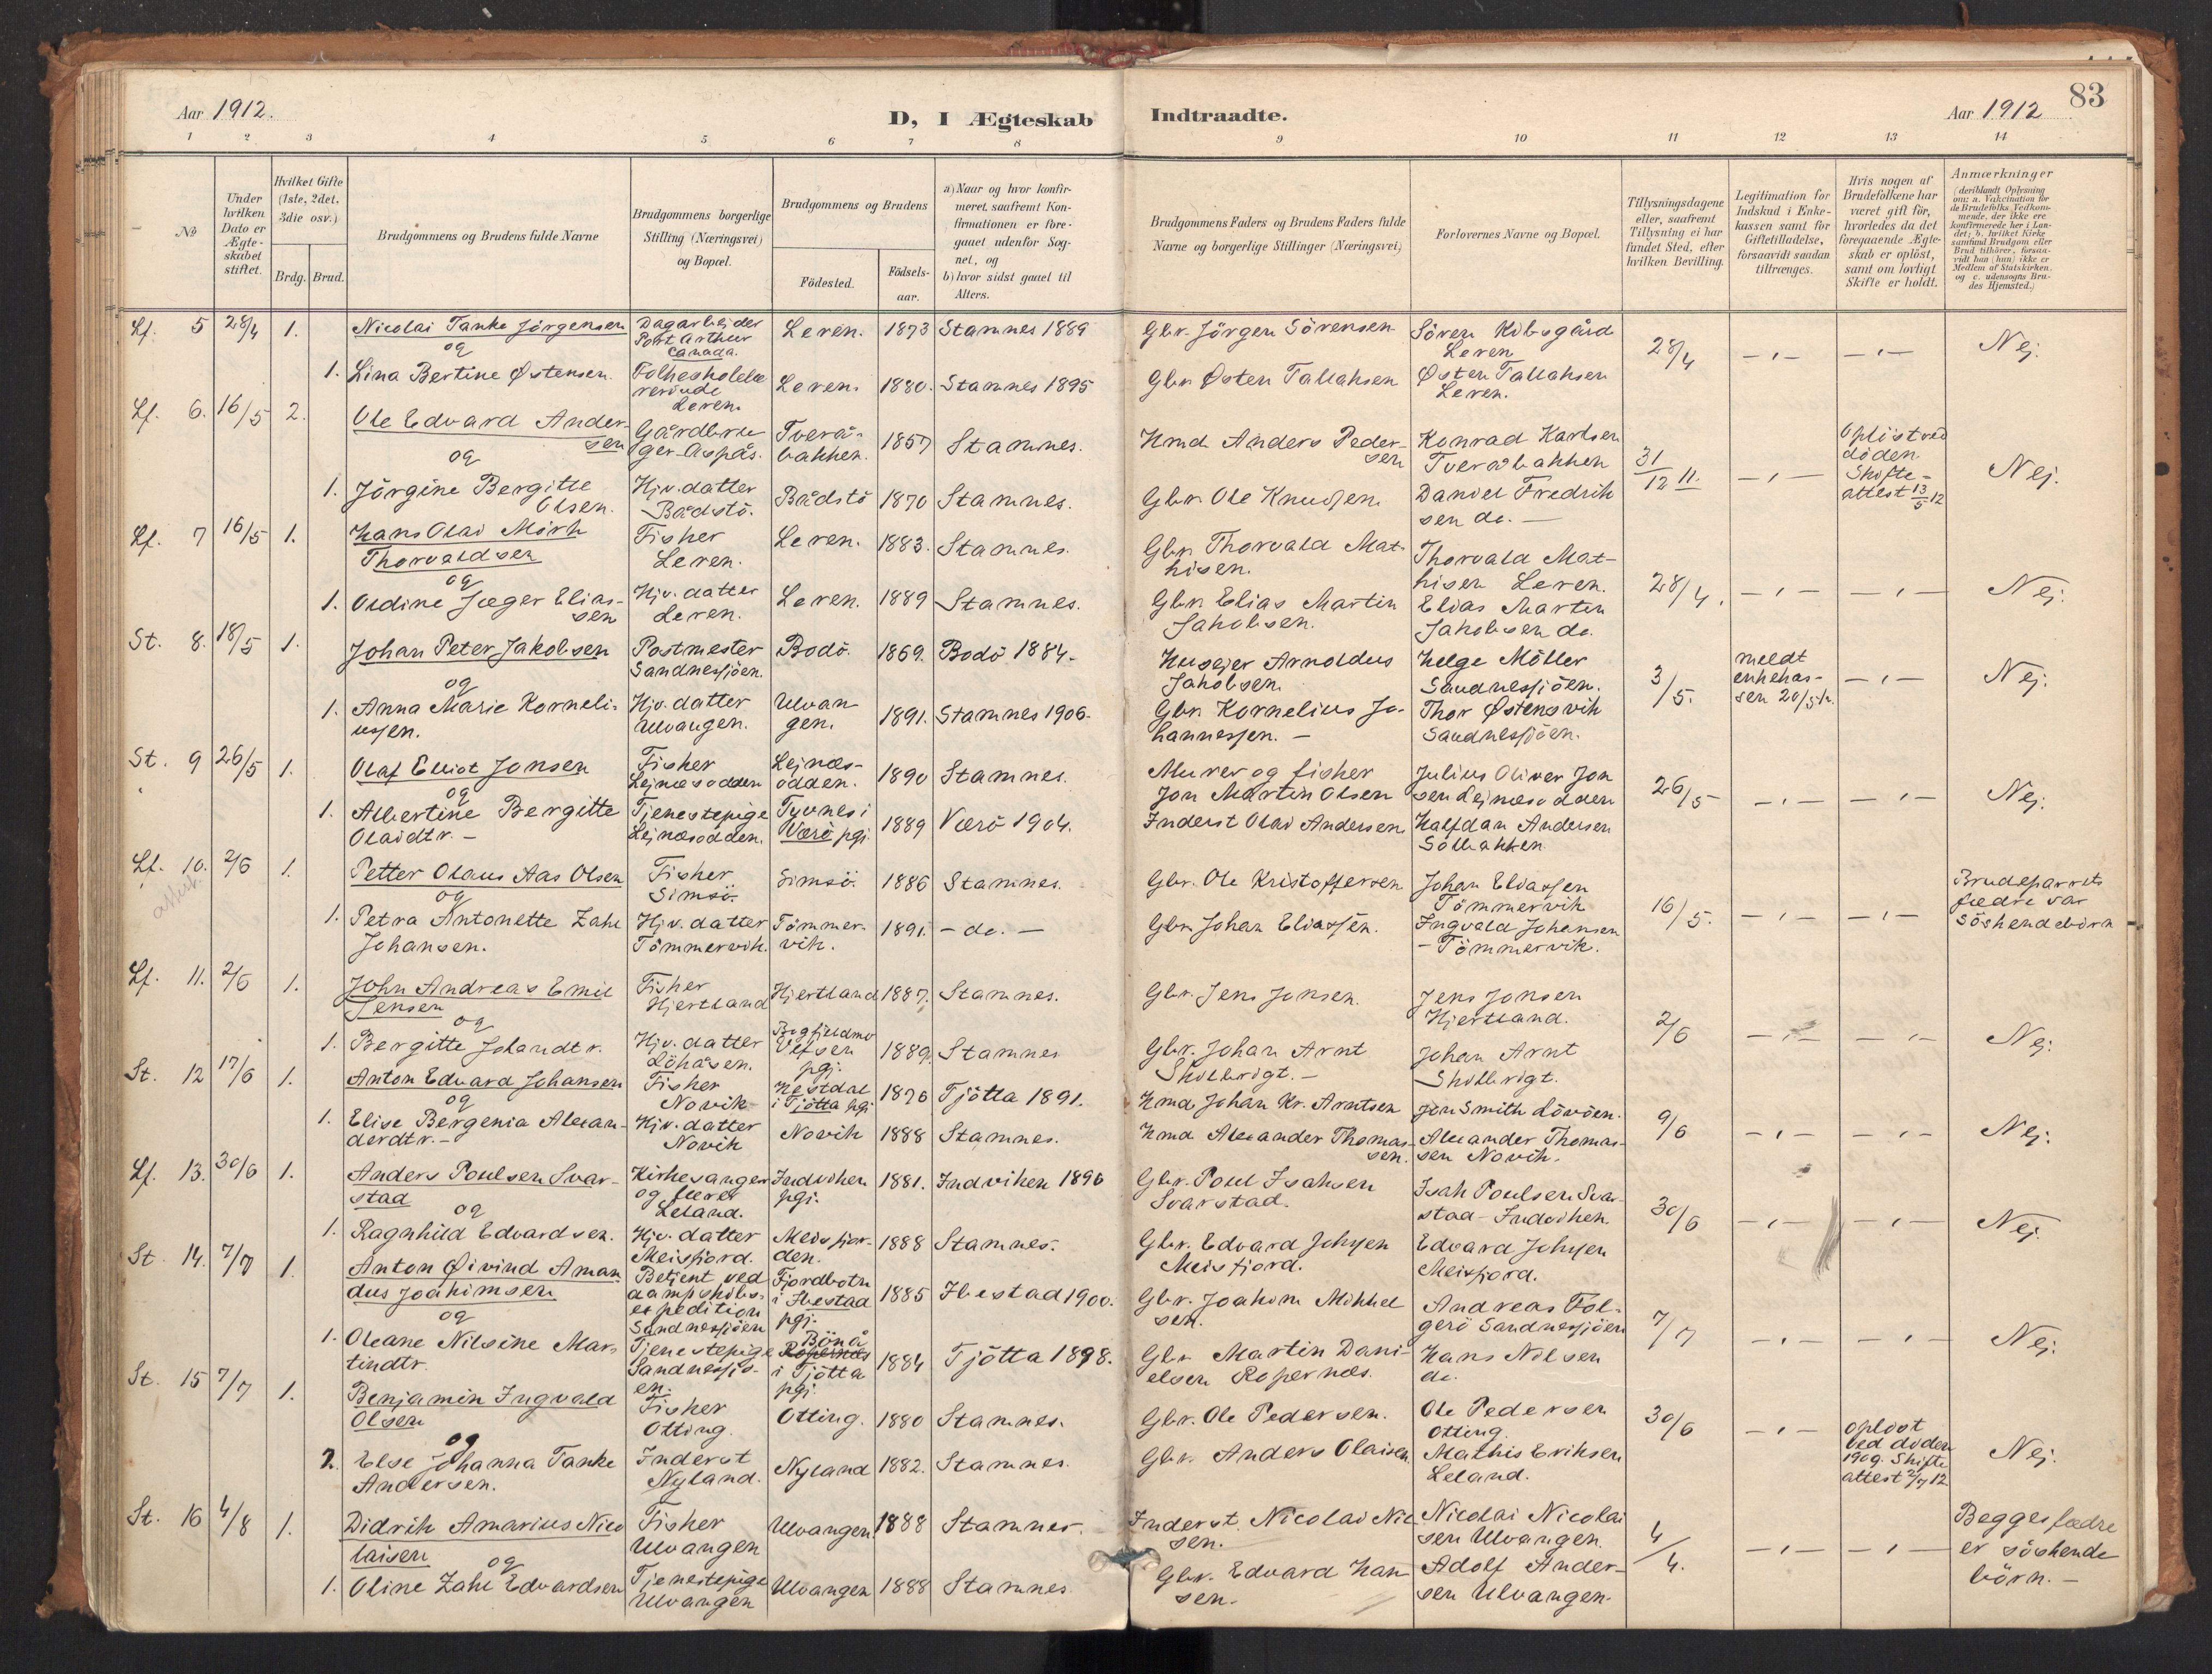 83
Aar 1912.
D, I Ægteskab Indtraadte.
Aar 1912
1 2 3 4 5 6 7 8 9 10 11 12 13 14
No
Under hvilken Dato er Ægteskabet stiftet.
Hvilket Gifte (1ste, 2det, 3die osv.)
Brdg. Brud.
Brudgommens og Brudens fulde Navne
Brudgommens borgerlige Stilling (Næringsvei) og Bopæl.
Brudgommens og Brudens
Fødested.
Fødsels-aar.
a) Naar og hvor konfirmeret, saafremt Konfirmationen er foregaaet udenfor Sognet, og
b) hvor sidst gaaet til Alters.
Brudgommens Faders og Brudens Faders fulde Navne og borgerlige Stillinger (Næringsvei)
Forlovernes Navne og Bopæl.
Tillysningsdagene eller, saafremt Tillysning ei har fundet Sted, efter hvilken Bevilling.
Legitimation for Indskud i Enkekassen samt for Giftetilladelse, forsaavidt saadan tiltrænges.
Hvis nogen af Brudefolkene har været gift før, hvorledes da det foregaaende Ægteskab er opløst, samt om lovligt Skifte er holdt.
Anmærkninger
(deriblandt Oplysning om: a. Vakcination for de Brudefolks Vedkommende, der ikke ere konfirmerede her i Landet; b. hvilket Kirkesamfund Brudgom eller Brud tilhører, forsaavidt han (hun) ikke er Medlem af Statskirken, og c. udensogns Brudes Hjemsted.)
Lf. 5 28/4 1. Nicolai Tanke Jörgensen Dagarbejder Port Arthur Canada. Leren. 1873 Stamnes 1889 Gbr. Jörgen Sörensen Sören Kibsgård Leren 28/4 - " - - " - Nej.
og
1. Lina Bertine Østensen Folkeskolelærerinde Leren. Leren. 1880. Stamnes 1895 Gbr Østen Tallaksen Østen Tallaksen Leren.
Lf. 6. 16/5 2. Ole Edvard Andersen Gårdbruger Aspås. Tveråbakken. 1857 Stamnes. Kmd Anders Pedersen Konrad Karlsen Tveråbakken 31/12 11. - " - Oplöst ved döden. Skifteattest 13/5 12 Nej.
og
1. Jörgine Bergitte Olsen. Hjv. datter Bådstö. Bådstö 1870 Stamnes. Gbr. Ole Knudsen Daniel Fredriksen do. -
Lf. 7 16/5 1. Hans Olai Mörk Thorvaldsen Fisker Leren. Leren. 1883. Stamnes. Gbr. Thorvald Mathisen. Thorvald Mathisen Leren. 28/4. - " - - " - Nej.
og
1. Ordine Jæger Eliassen Hjv. datter Leren. Leren. 1889 Stamnes. Gbr. Elias Martin Jakobsen. Elias Martin Jakobsen do.
St. 8. 18/5 1. Johan Peter Jakobsen Postmester Sandnessjöen. Bodö. 1869. Bodö 1884. Husejer Arnoldus Jakobsen. Helge Möller Sandnessjöen. 3/5. meldt enkekassen 20/5 12. - " - Nej.
og
1. Anna Marie Korneliussen. Hjv. datter Ulvangen. Ulvangen. 1891. Stamnes 1906. Gbr. Kornelius Johannessen. - Thor Østensvik Sandnessjöen.
St. 9 26/5 1. Olaf Elliot Jonsen Fisker Lejnæsodden Lejnæsodden. 1890 Stamnes. Murer og fisker Jon Martin Olsen Julius Oliver Jonsen Lejnæsodden 26/5 - " - - " - Nej.
og
1. Albertine Bergitte Olaidtr. - Tjenestepige Lejnæsodden. Tyvnes i Værö pgj. 1889 Værö 1904. Inderst Olai Andersen Halfdan Andersen Solbakken
Lf. 10. 2/6 1. Petter Olaus Aas Olsen Fisker Simsö. Simsö. 1886 Stamnes. Gbr. Ole Kristoffersen Johan Eliassen Tömmervik 16/5. - " - - " - Brudeparrets fædre var söskendebörn
attest.
og
1. Petra Antonette Zahl Johansen. Hjv. datter Tömmervik. Tömmervik. 1891. - do. - Gbr. Johan Eliassen. Ingvald Johansen - Tömmervik.
Lf. 11. 2/6 1. John Andreas Emil Jensen Fisker Hjertland Hjertland 1887. Stamnes. Gbr. Jens Jonsen. Jens Jonsen Hjertland. 2/6 - " - - " - Nej.
og
1. Bergitte Johandtr. Hjv. datter Lökåsen. Bagfjeldmo Vefsen pgj. 1889. Stamnes Gbr. Johan Arnt Skilbrigt. - Johan Arnt Skilbrigt.
St. 12 17/6 1. Anton Edvard Johansen Fisker Novik Hestdal i Tjötta pgj. 1876 Tjötta 1891. Kmd Johan Kr. Arntsen Jon Smith Lövöen. 9/6 - " - - " - Nej.
og
1. Elise Bergenia Alexanderdtr. - Hjv. datter Novik Novik 1888 Stamnes. Kmd Alexander Thomassen. Alexander Thomassen Novik.
Lf. 13. 30/6 1. Anders Poulsen Svarstad Kirkesanger og lærer Leland. Indviken pgj. 1881. Indviken 1896 Gbr. Poul Isaksen Svarstad. Isak Poulsen Svarstad - Indviken. 30/6 - " - - " - Nej.
og
1. Ragnhild Edvardsen. Hjv. datter Meisfjord. Meisfjorden. 1888 Stamnes. Gbr. Edvard Johsen Meisfjord. Edvard Johsen Meisfjord.
St. 14. 7/7 1. Anton Øivind Amandus Joakimsen Betjent ved dampskibsexpedition Sandnessjöen Fjordbotn i Ibestad pgj. 1885 Ibestad 1900. Gbr. Joakim Mikkelsen. Andreas Folgerö Sandnessjöen 7/7 - " - - " - Nej.
og
1. Oleane Nilsine Martindtr. Tjenestepige Sandnessjöen. Bönå i Tjötta pgj. 1884 Tjötta 1898. Gbr Martin Danielsen Ropernæs. Hans Nilsen do.
St. 15 7/7 1. Benjamin Ingvald Olsen Fisker Otting. Otting. 1880 Stamnes. Gbr. Ole Pedersen. Ole Pedersen Otting. 30/6 - " - oplöst ved döden 1909. Skifteattest 2/7 12 Nej.
og
2. Else Johanna Tanke Andersen. Inderst Nyland. Nyland 1882. Stamnes. Gbr. Anders Olaisen Mathis Eriksen Leland.
St. 16 4/8 1. Didrik Amarius Nicolaisen Fisker Ulvangen Ulvangen. 1888 Stamnes. Inderst. Nicolai Nilsen. Nicolai Nicolaisen Ulvangen. 4/4. - " - - " - Begges fædre er söskendebörn. -
og
1. Oline Zahl Edvardsen Tjenestepige Ulvangen Ulvangen 1888 Stamnes. Gbr. Edvard Hansen. Adolf Andersen Ulvangen.